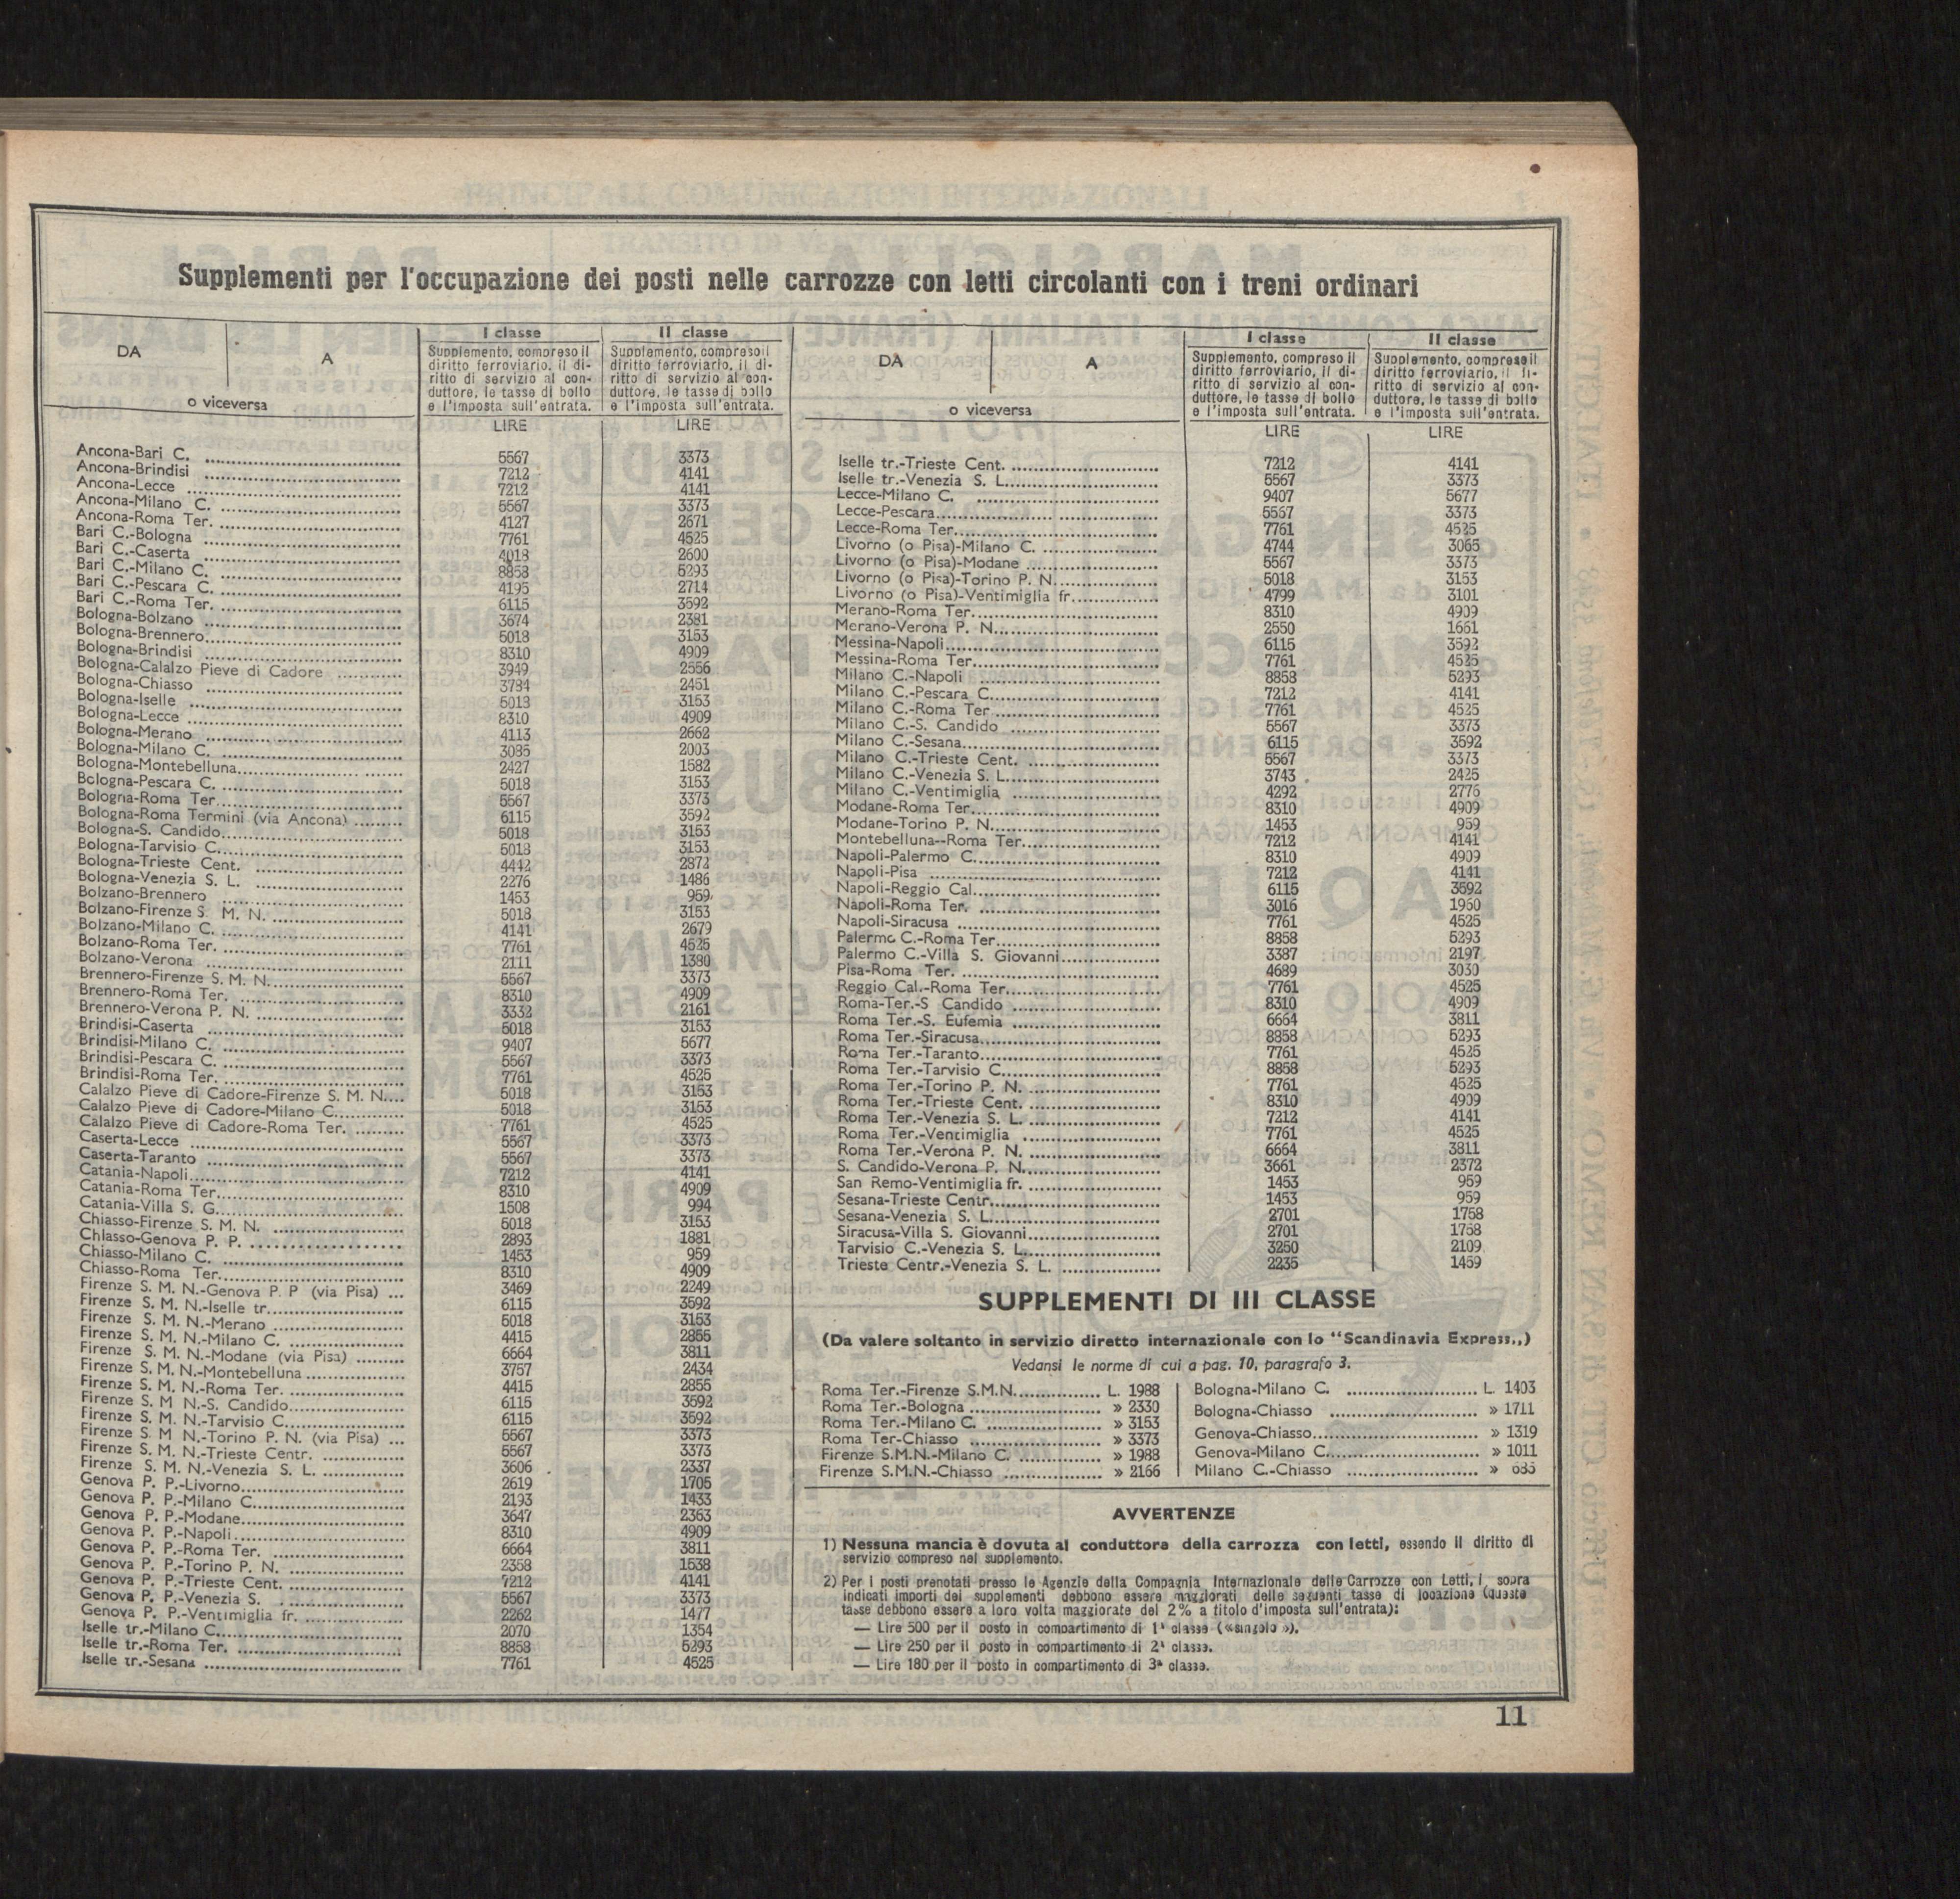 Supplementi per l'occupazione dei posti nelle carrozze con letti circolanti con i treni ordinari
DA A
o viceversa
I classe
Supplemento, compreso il
diritto ferroviario, il di-
ritto di servizio al con-
duttore, le tasse di bollo
e l'imposta sull'entrata.
LIRE
II classe
Supplemento, compreso il
diritto ferroviario, il di-
ritto di servizio al con-
duttore, le tasse di bollo
e l'imposta sull'entrata.
LIRE
Ancona-Bari C. 5567 3373
Ancona-Brindisi 7212 4141
Ancona-Lecce 7212 4141
Ancona-Milano C. 5567 3373
Ancona-Roma Ter. 4127 2671
Bari C.-Bologna 7761 4525
Bari C.-Caserta 4018 2600
Bari C.-Milano C. 8858 5293
Bari C.-Pescara C. 4195 2714
Bari C.-Roma Ter. 6115 3592
Bologna-Bolzano 3674 2381
Bologna-Brennero 5018 3153
Bologna-Brindisi 8310 4909
Bologna-Calalzo Pieve di Cadore 3949 2556
Bologna-Chiasso 3784 2451
Bologna-Iselle 5018 3153
Bologna-Lecce 8310 4909
Bologna-Merano 4113 2662
Bologna-Milano C. 3085 2003
Bologna-Montebelluna 2427 1582
Bologna-Pescara C. 5018 3153
Bologna-Roma Ter. 5567 3373
Bologna-Roma Termini (via Ancona) 6115 3592
Bologna-S. Candido 5018 3153
Bologna-Tarvisio C. 5018 3153
Bologna-Trieste Cent. 4442 2872
Bologna-Venezia S. L. 2276 1486
Bolzano-Brennero 1453 959
Bolzano-Firenze S. M. N. 5018 3153
Bolzano-Milano C. 4141 2679
Bolzano-Roma Ter. 7761 4525
Bolzano-Verona 2111 1380
Brennero-Firenze S. M. N. 5567 3373
Brennero-Roma Ter. 8310 4909
Brennero-Verona P. N. 3332 2161
Brindisi-Caserta 5018 3153
Brindisi-Milano C. 9407 5677
Brindisi-Pescara C. 5567 3373
Brindisi-Roma Ter. 7761 4525
Calalzo Pieve di Cadore-Firenze S. M. N. 5018 3153
Calalzo Pieve di Cadore-Milano C. 5018 3153
Calalzo Pieve di Cadore-Roma Ter. 7761 4525
Caserta-Lecce 5567 3373
Caserta-Taranto 5567 3373
Catania-Napoli 7212 4141
Catania-Roma Ter. 8310 4909
Catania-Villa S. G. 1508 994
Chiasso-Firenze S. M. N. 5018 3153
Chiasso-Genova P. P. 2893 1881
Chiasso-Milano C. 1453 959
Chiasso-Roma Ter. 8310 4909
Firenze S. M. N.-Genova P. P (via Pisa) 3469 2249
Firenze S. M. N.-Iselle tr. 6115 3592
Firenze S. M. N.-Merano 5018 3153
Firenze S. M. N.-Milano C. 4415 2855
Firenze S. M. N.-Modane (via Pisa) 6664 3811
Firenze S. M. N.-Montebelluna 3757 2434
Firenze S. M. N.-Roma Ter. 4415 2855
Firenze S. M N.-S. Candido 6115 3592
Firenze S. M. N.-Tarvisio C. 6115 3592
Firenze S. M N.-Torino P. N. (via Pisa) 5567 3373
Firenze S. M. N.-Trieste Centr. 5567 3373
Firenze S. M. N.-Venezia S. L. 3606 2337
Genova P. P.-Livorno 2619 1705
Genova P. P.-Milano C. 2193 1433
Genova P. P.-Modane 3647 2363
Genova P. P.-Napoli 8310 4909
Genova P. P.-Roma Ter. 6664 3811
Genova P. P.-Torino P. N. 2358 1538
Genova P. P.-Trieste Cent. 7212 4141
Genova P. P.-Venezia S. 5567 3373
Genova P. P.-Ventimiglia fr. 2262 1477
Iselle tr.-Milano C. 2070 1354
Iselle tr.-Roma Ter. 8858 5293
Iselle tr.-Sesana 7761 4525
DA A
o viceversa
I classe
Supplemento, compreso il
diritto ferroviario, il di-
ritto di servizio al con-
duttore, le tasse di bollo
e l'imposta sull'entrata.
LIRE
II classe
Supplemento, compreso il
diritto ferroviario, il di-
ritto di servizio al con-
duttore, le tasse di bollo
e l'imposta sull'entrata.
LIRE
Iselle tr.-Trieste Cent. 7212 4141
Iselle tr.-Venezia S. L. 5567 3373
Lecce-Milano C. 9407 5677
Lecce-Pescara 5567 3373
Lecce-Roma Ter. 7761 4525
Livorno (o Pisa)-Milano C. 4744 3065
Livorno (o Pisa)-Modane 5567 3373
Livorno (o Pisa)-Torino P. N. 5018 3153
Livorno (o Pisa)-Ventimiglia fr. 4799 3101
Merano-Roma Ter. 8310 4909
Merano-Verona P. N. 2550 1661
Messina-Napoli 6115 3592
Messina-Roma Ter. 7761 4525
Milano C.-Napoli 8858 5293
Milano C.-Pescara C. 7212 4141
Milano C.-Roma Ter 7761 4525
Milano C.-S. Candido 5567 3373
Milano C.-Sesana 6115 3592
Milano C.-Trieste Cent. 5567 3373
Milano C.-Venezia S. L. 3743 2425
Milano C.-Ventimiglia 4292 2776
Modane-Roma Ter. 8310 4909
Modane-Torino P. N. 1453 959
Montebelluna--Roma Ter. 7212 4141
Napoli-Palermo C. 8310 4909
Napoli-Pisa 7212 4141
Napoli-Reggio Cal. 6115 3592
Napoli-Roma Ter. 3016 1960
Napoli-Siracusa 7761 4525
Palermo C.-Roma Ter. 8858 5293
Palermo C.-Villa S. Giovanni 3387 2197
Pisa-Roma Ter. 4689 3030
Reggio Cal.-Roma Ter. 7761 4525
Roma-Ter.-S Candido 8310 4909
Roma Ter.-S. Eufemia 6664 3811
Roma Ter.-Siracusa 8858 5293
Roma Ter.-Taranto 7761 4525
Roma Ter.-Tarvisio C. 8858 5293
Roma Ter.-Torino P. N. 7761 4525
Roma Ter.-Trieste Cent. 8310 4909
Roma Ter.-Venezia S. L. 7212 4141
Roma Ter.-Ventimiglia 7761 4525
Roma Ter.-Verona P. N. 6664 3811
S. Candido-Verona P. N. 3661 2372
San Remo-Ventimiglia fr. 1453 959
Sesana-Trieste Centr. 1453 959
Sesana-Venezia S. L. 2701 1758
Siracusa-Villa S. Giovanni 2701 1758
Tarvisio C.-Venezia S. L. 3250 2109
Trieste Centr.-Venezia S. L. 2235 1459
SUPPLEMENTI DI III CLASSE
(Da valere soltanto in servizio diretto internazionale con lo "Scandinavia Express,,)
Vedansi le norme di cui a pag. 10, paragrafo 3.
Roma Ter.-Firenze S.M.N. L. 1988
Roma Ter.-Bologna » 2330
Roma Ter.-Milano C. » 3153
Roma Ter-Chiasso » 3373
Firenze S.M.N.-Milano C. » 1988
Firenze S.M.N.-Chiasso » 2166
Bologna-Milano C. L. 1403
Bologna-Chiasso » 1711
Genova-Chiasso » 1319
Genova-Milano C. » 1011
Milano C.-Chiasso »
AVVERTENZE
1) Nessuna mancia è dovuta al conduttore della carrozza con letti, essendo il diritto di
servizio compreso nel supplemento.
2) Per i posti prenotati presso le Agenzie della Compagnia Internazionale delle Carrozze con Letti, i sopra
indicati importi dei supplementi debbono essere maggiorati delle seguenti tasse di locazione (queste
tasse debbono essere a loro volta maggiorate del 2% a titolo d'imposta sull'entrata):
— Lire 500 per il posto in compartimento di 1ª classe («singolo»).
— Lire 250 per il posto in compartimento di 2ª classe.
— Lire 180 per il posto in compartimento di 3ª classe.
11